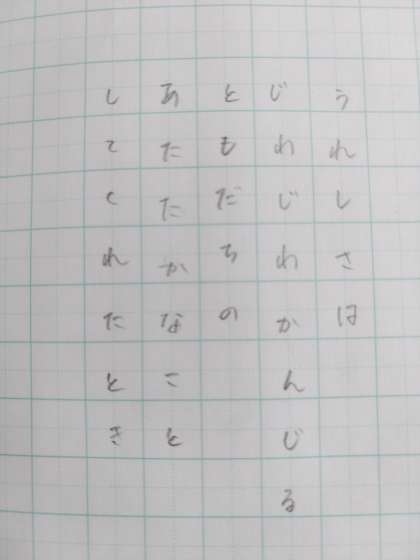 うれしさは
じわじわかんじる
ともだちの
あたたかなこと
してくれたとき